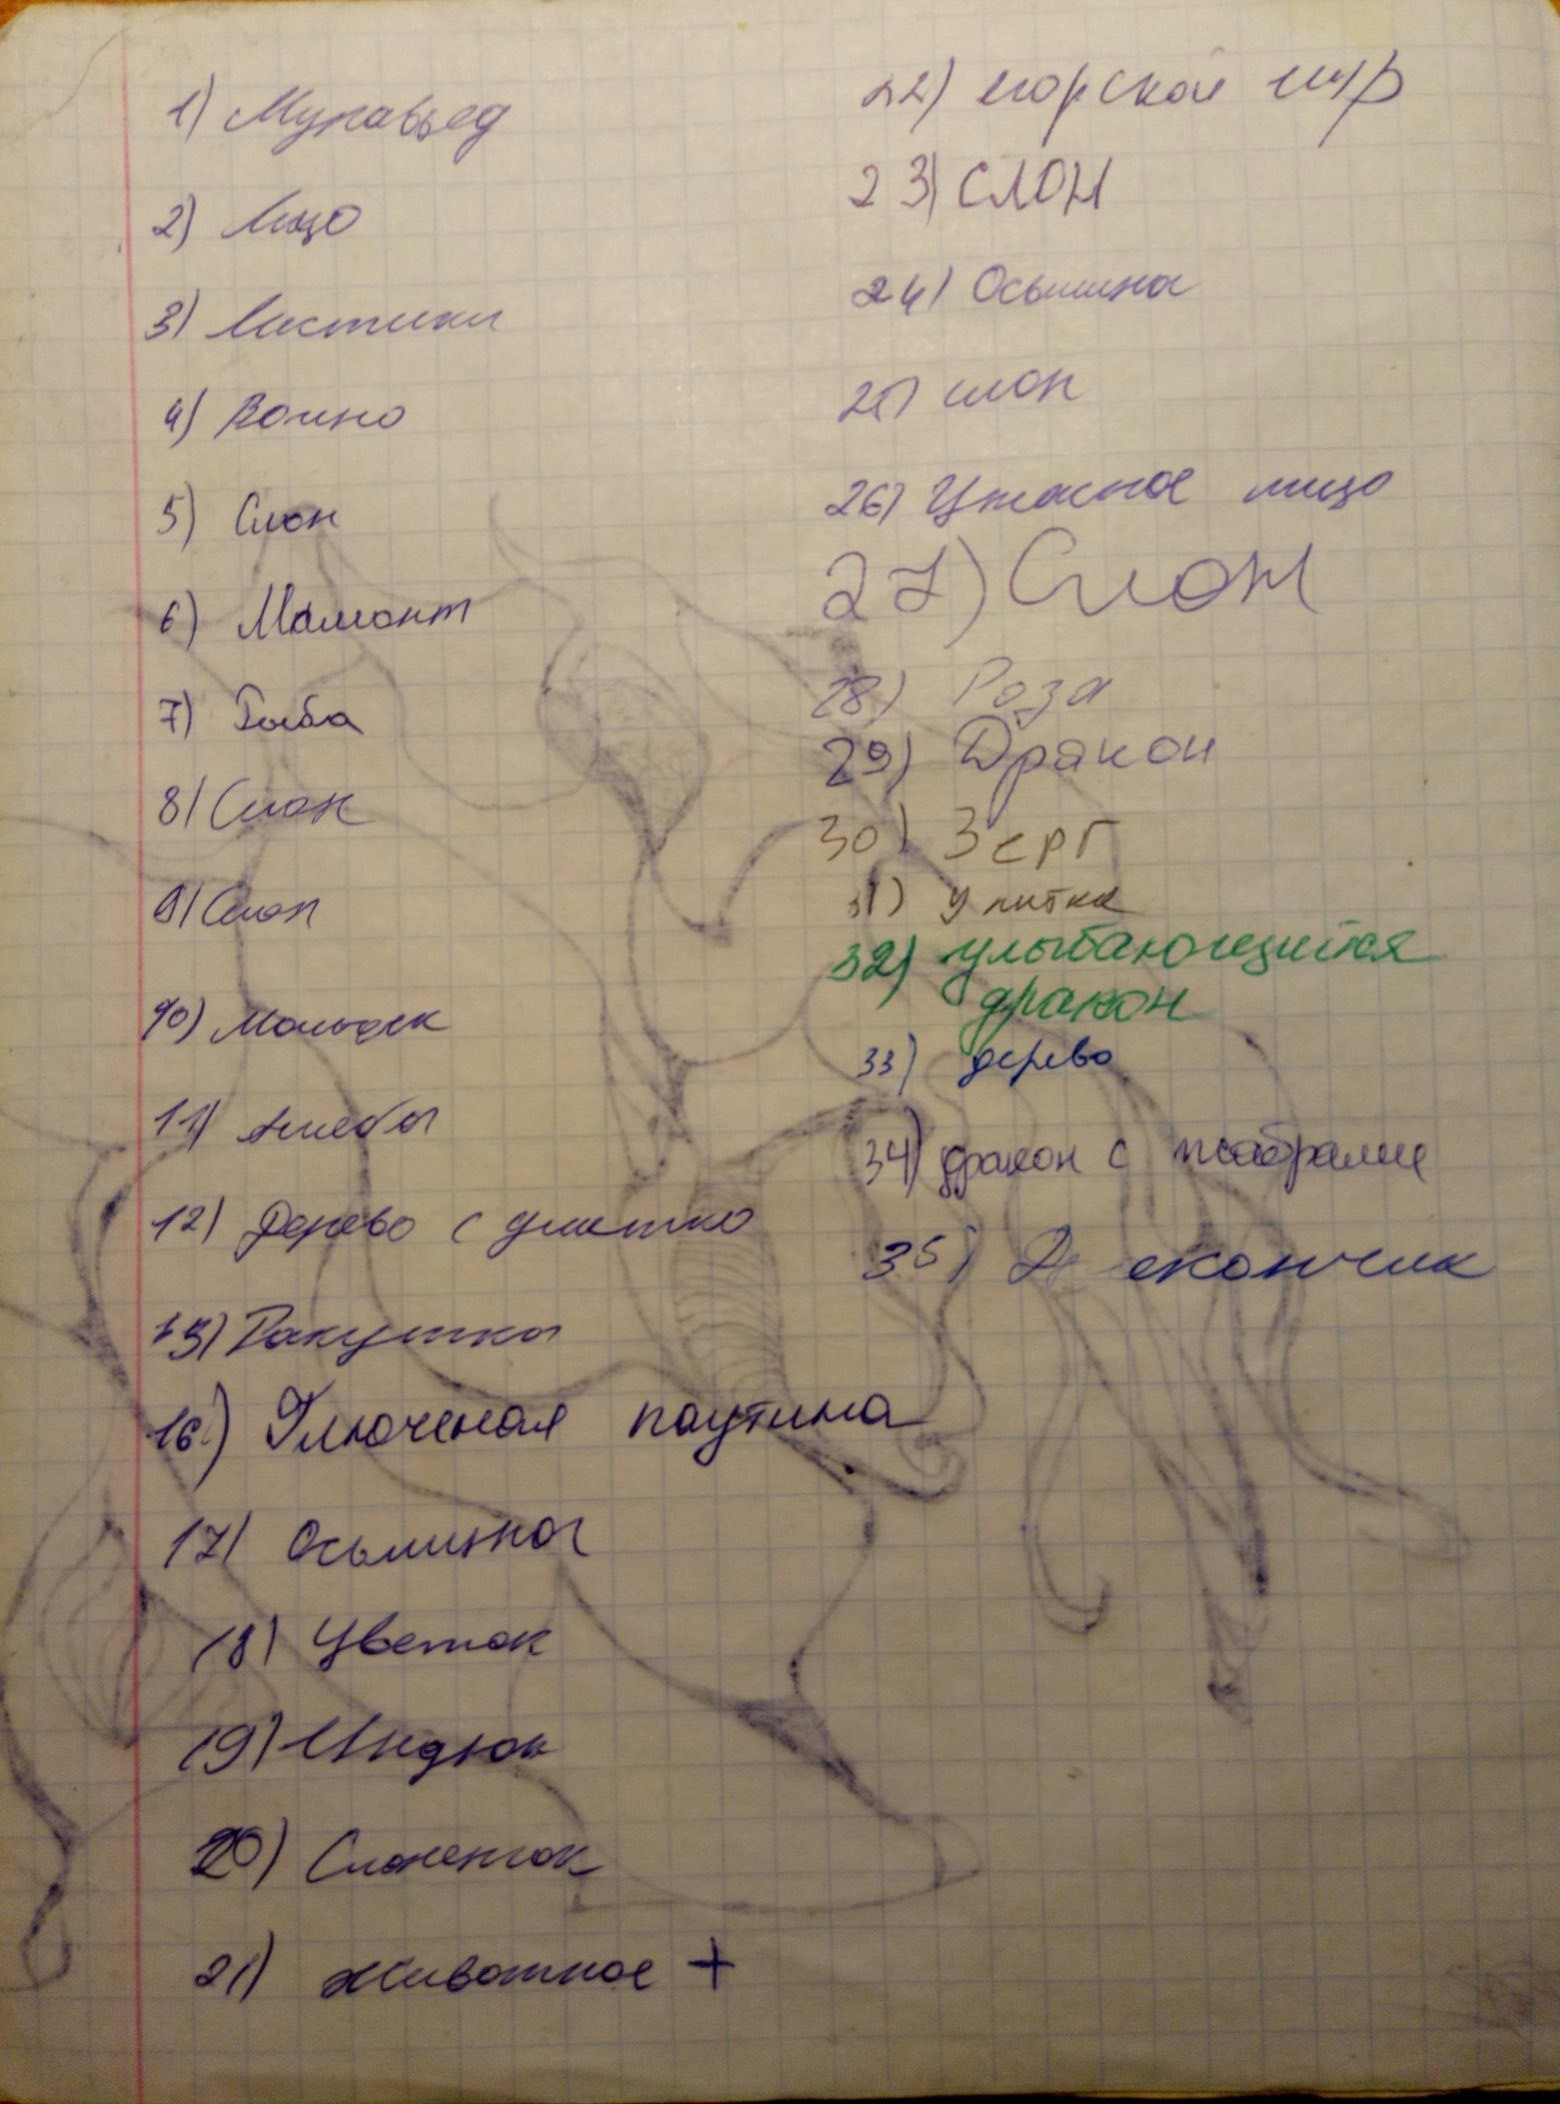 1) Муравьед
2) Лицо
3) Ластики
4)
5) Слон
6) Мамонт
7) Рыба
8) Слон
9) Слон
10)
11) Амебы
12) Дерево с
15) Ракушки
16.) Глюченая паутина
17) Осьминог
18) Цветок
19) Индюк
20) Слоненок
21) животное +
22) морской
23) СЛОН
24)
25) слон
26) Ужасное лицо
27) Слон
28) Роза
29) Дракон
30) Зерг
31) Улитка
32) улыбающийся
дракон
33) дерево
34) дракон с жабрами
35)